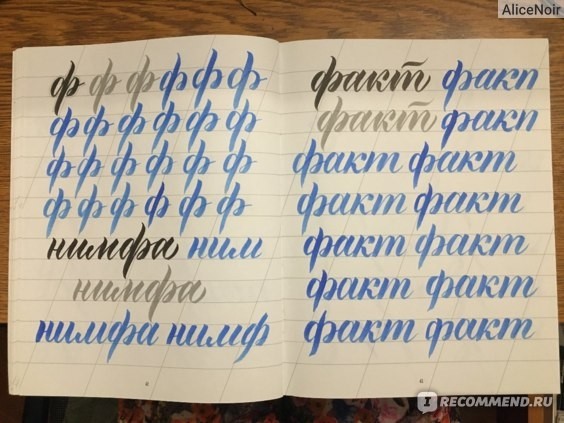 AliceNoir
ф ф ф ф ф ф
ф ф ф ф ф ф
ф ф ф ф ф ф
ф ф ф ф ф ф
нимфа ним
нимфа
нимфа нимф
факт факп
факт факп
факт факт
факт факт
факт факт
факт факт
факт факт
IRECOMMEND.RU